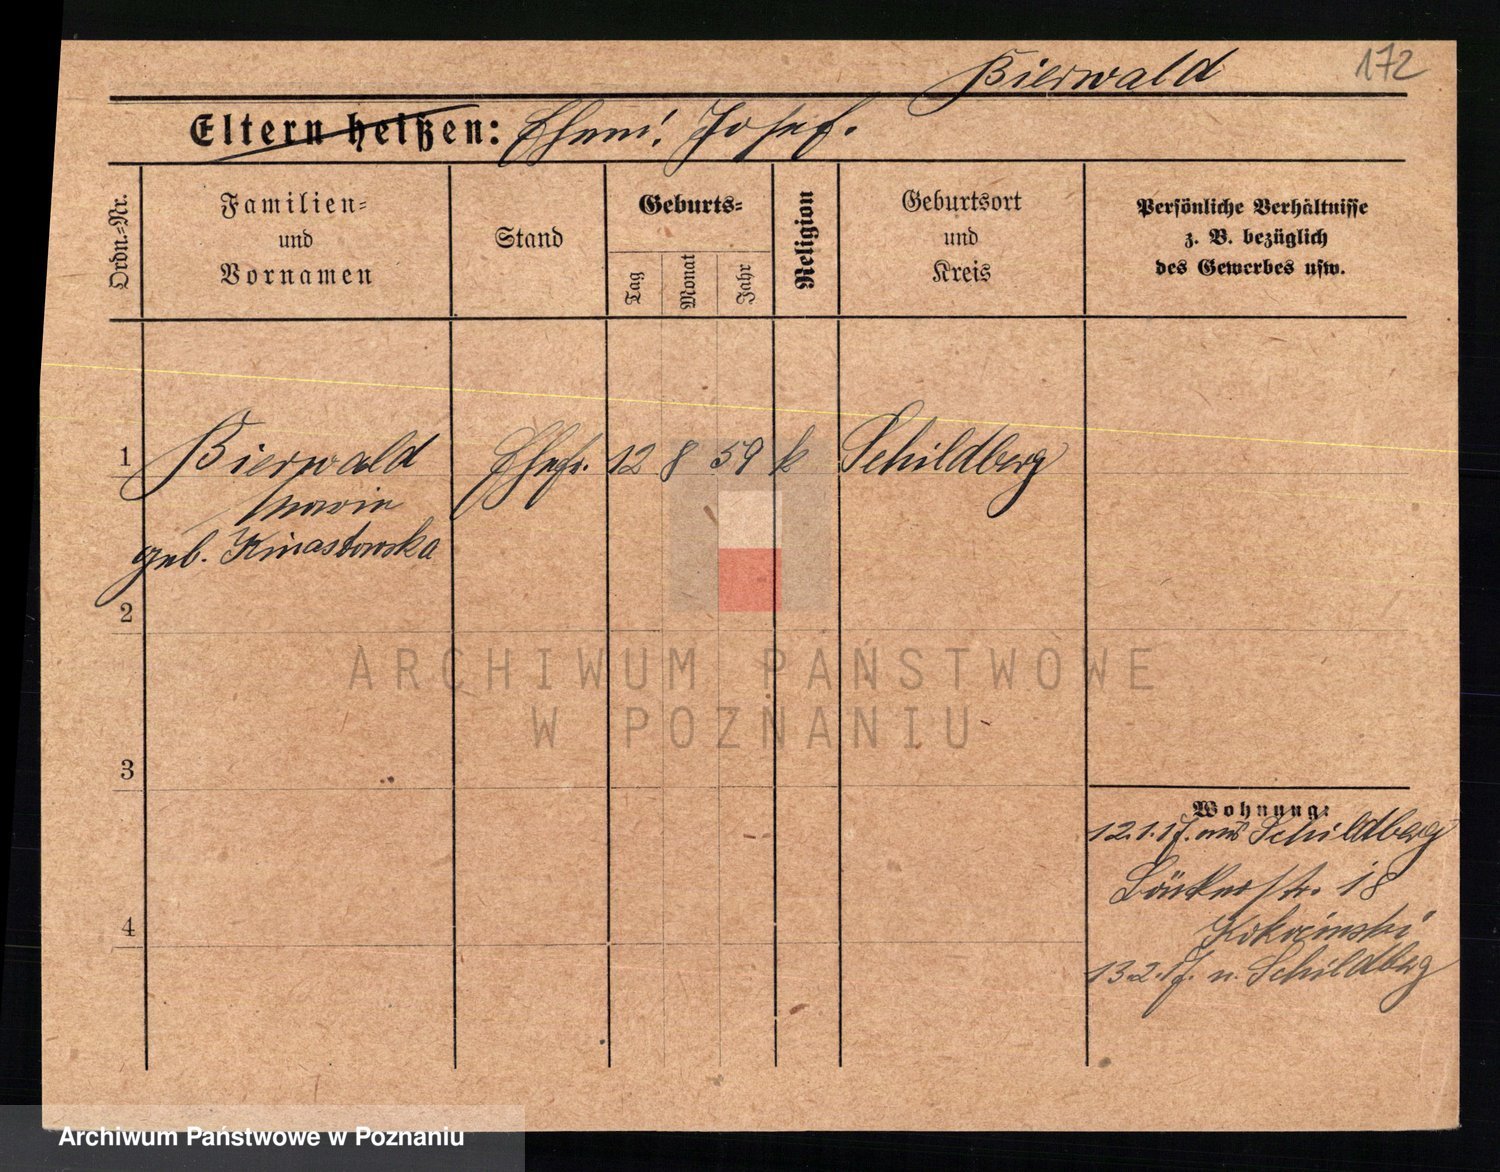 172
Bierwald
Eltern heißen: Ehem. Josef.
Ordn.-Nr.
Familien-
und
Vornamen
Stand
Geburts-
Tag
Monat
Jahr
Religion
Geburtsort
und
Kreis
Persönliche Verhältnisse
z. B. bezüglich
des Gewerbes usw.
1 Bierwald Ehefr. 12 8 59 k Schildberg
Marie
geb. Kinastowska
2
3
4
Wohnung:
12.1.17. aus Schildberg
Bäckerstr. 18
Kokocinski
13.2.17. n. Schildberg
ARCHIWUM PAŃSTWOWE
W POZNANIU
Archiwum Państwowe w Poznaniu